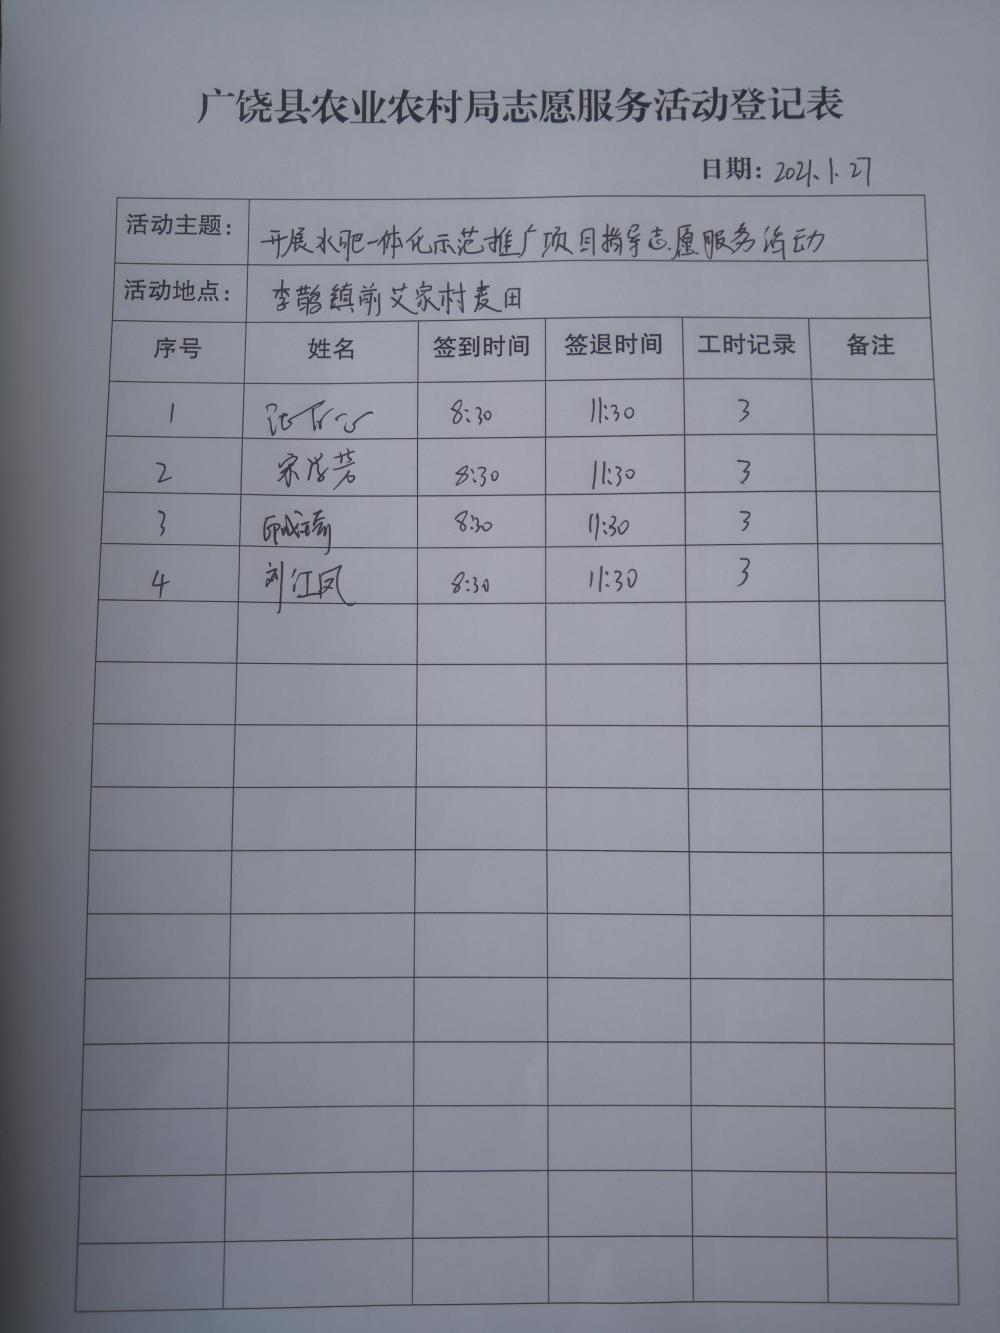 广饶县农业农村局志愿服务活动登记表
日期: 2021.1.27
活动主题: 开展水肥一体化示范推广项目指导志愿服务活动
活动地点: 李鹊镇前艾家村麦田
序号 姓名 签到时间 签退时间 工时记录 备注
1 8:30 11:30 3
2 宋学芳 8:30 11:30 3
3 8:30 11:30 3
4 刘江凤 8:30 11:30 3